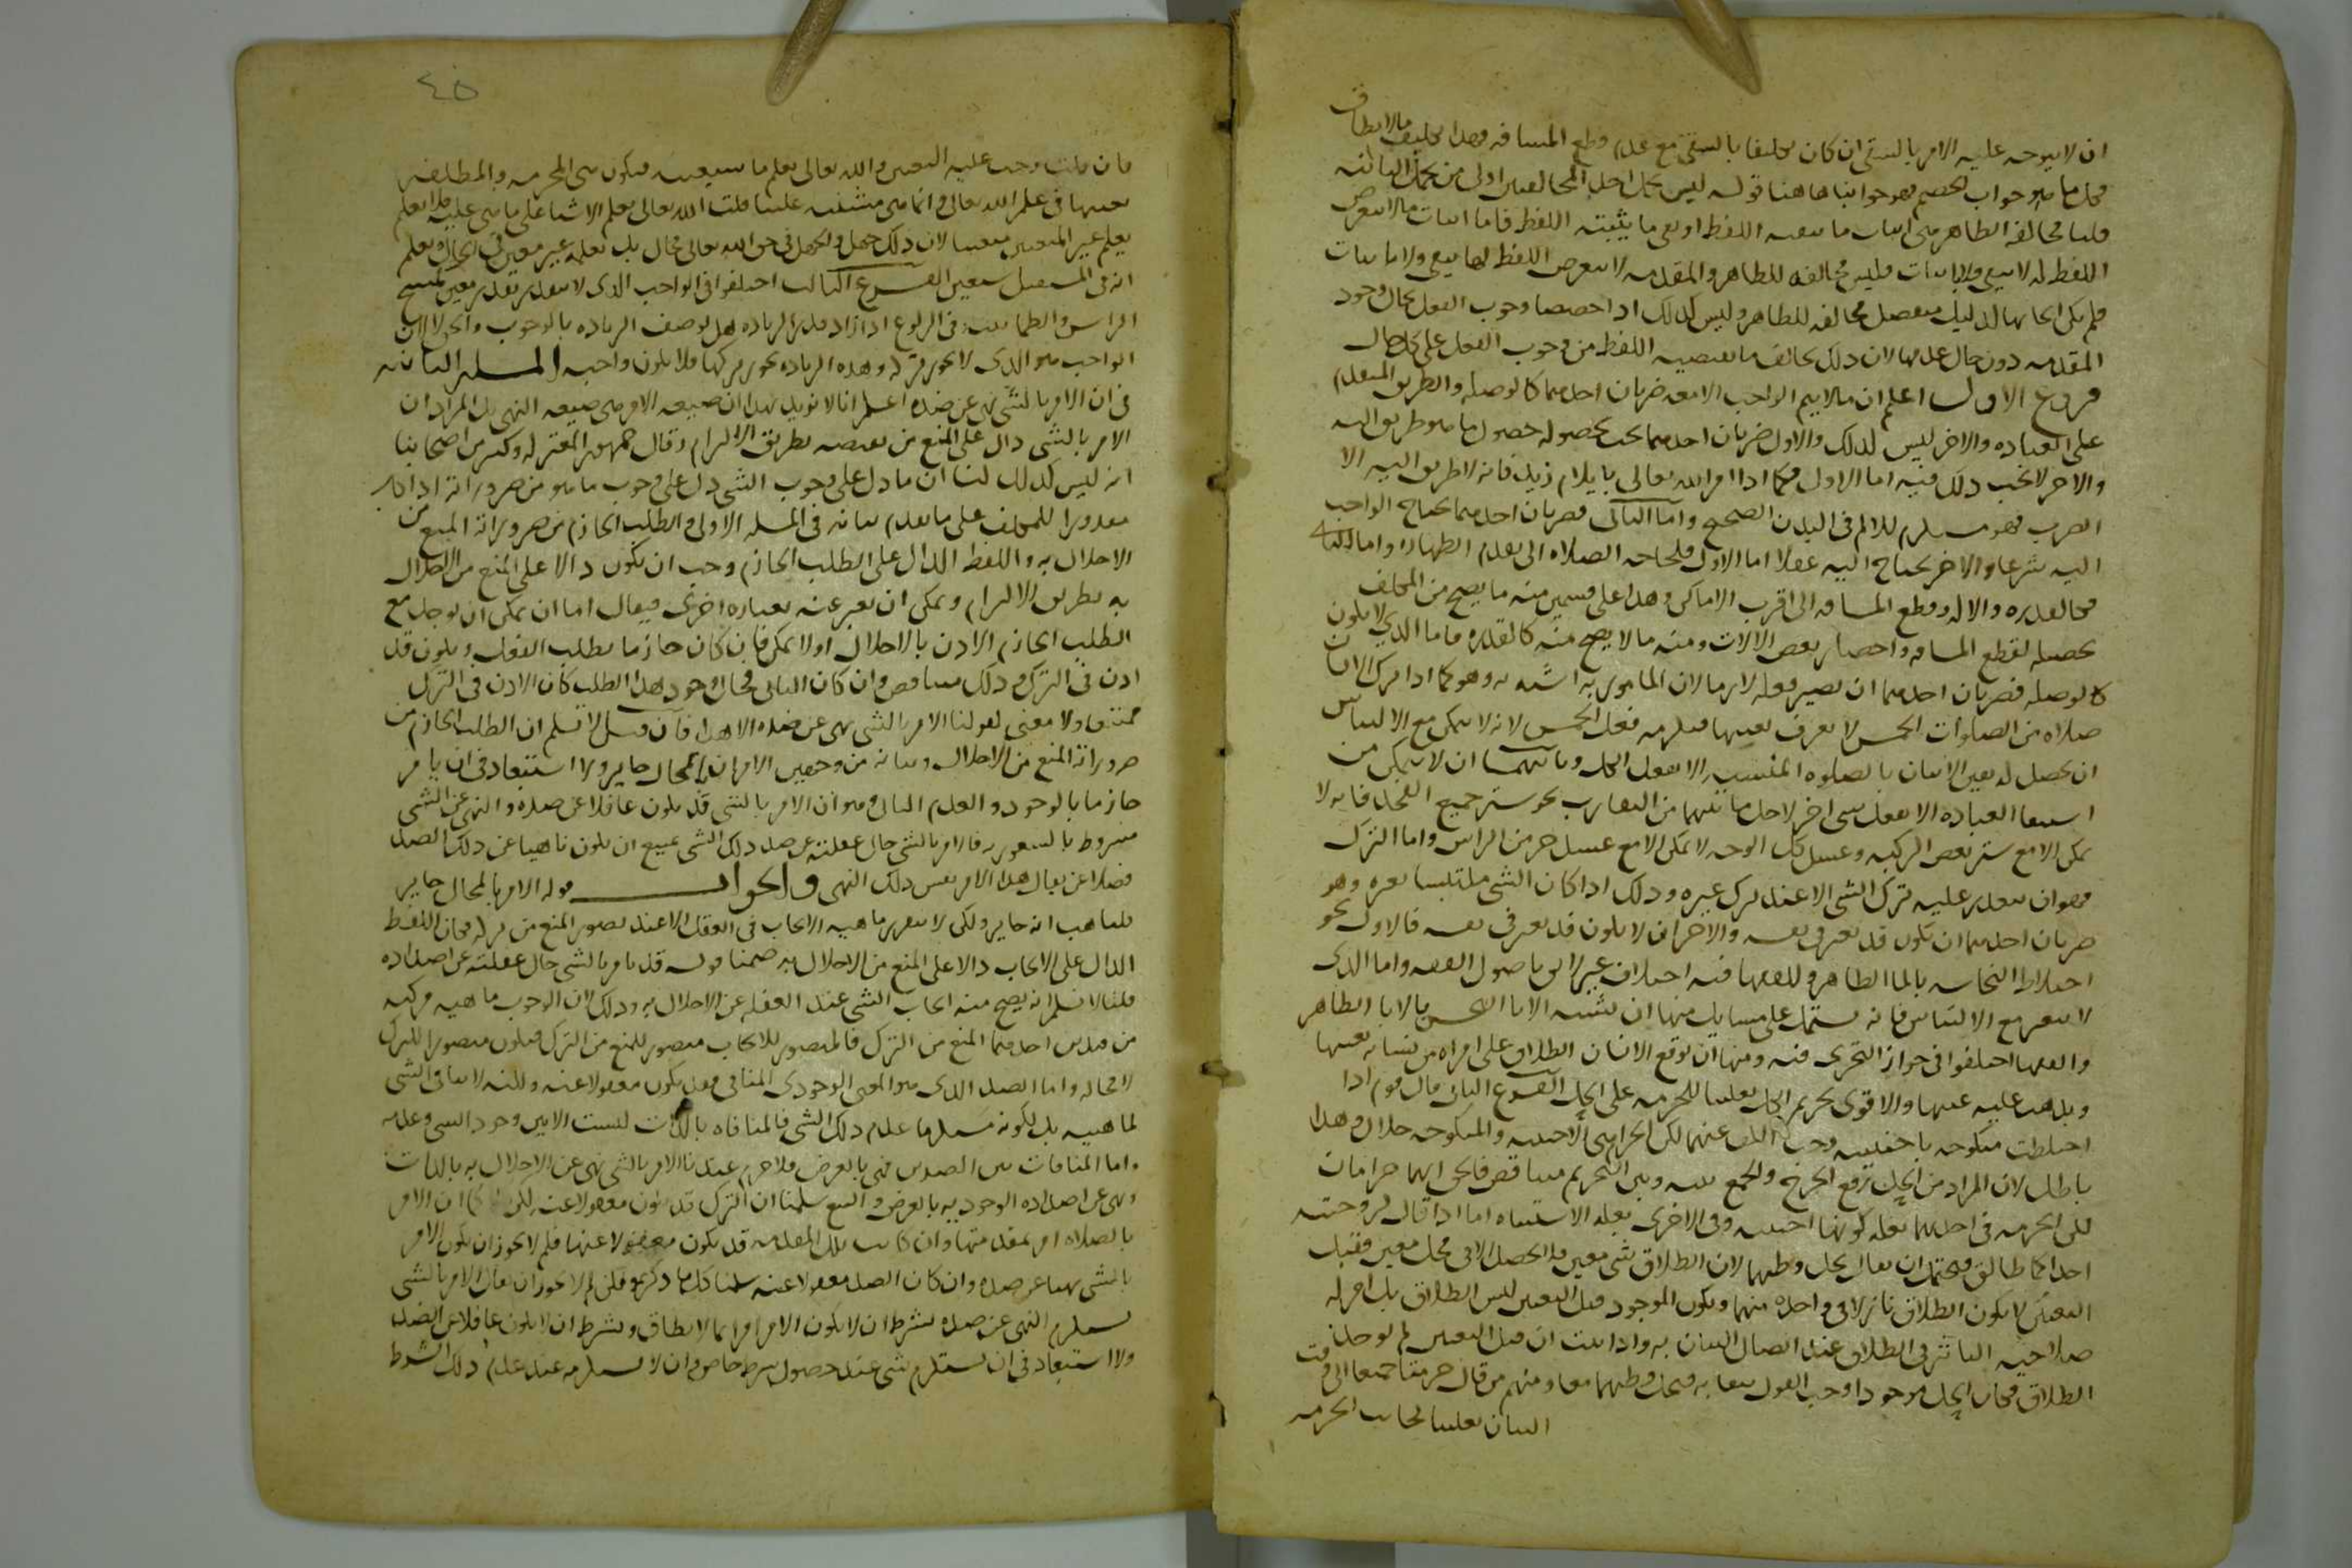 ان لا يتوجه عليه الامر بالسقي ان كان مكلفا بالسقي مع عدم قطع المسافه فهذا تكليف ما لا يطاق
فكل ما هو جواب الخصم فهو جوابنا هاهنا قوله ليس تحمل احدى المخالفتين اولى من تحمل الثانيه
قلنا مخالفة الظاهر هي اثبات ما ينفيه اللفظ او نفي ما يثبته اللفظ فاما اثبات ما لا يتعرض
اللفظ له لا بنفي ولا باثبات فليس مخالفه للظاهر والمقدمه لا يتعرض اللفظ لها بنفي ولا باثبات
فلم يكن ايجابها لدليل منفصل مخالفه للظاهر وليس كذلك اذا خصصنا وجوب الفعل بحال وجود
المقدمه دون حال عدمها لان ذلك يخالف ما يقتضيه اللفظ من وجوب الفعل على كل حال
فروع الاول اعلم ان ما لا يتم الواجب الا معه ضربان احدهما كالوصله والطريق المتقدم
على العباده والاخر ليس كذلك والاول ضربان احدهما يجب بحصوله حصول ما هو طريق اليه
والاخر لا يجب ذلك فيه اما الاول فكما اذا امر الله تعالى بايلام زيد فانه لا طريق اليه الا
الضرب فهو مستلزم للالم في البدن الصحيح واما الثاني فضربان احدهما يحتاج الواجب
اليه شرعا والاخر يحتاج اليه عقلا اما الاول فكحاجه الصلاه الى تقدم الطهاره واما الثاني
فكالقدره والاله وقطع المسافه الى اقرب الاماكن وهذا على قسمين منه ما يصح من المكلف
تحصيله كقطع المسافه واحضار بعض الالات ومنه ما لا يصح منه كالقدره فاما الذي لا يكون
كالوصله فضربان احدهما ان يصير فعله لازما لان المامور به اشتبه به وهو كما اذا ترك الانسان
صلاه من الصلوات الخمس لا يعرف بعينها فيلزمه فعل الخمس لانه لا يمكن مع الالتباس
ان يحصل له يقين الاتيان بالصلوه المنسيه الا بفعل الكل وثانيهما ان لا يتمكن من
استيفا العباده الا بفعل شي اخر لاجل ما بينهما من التقارب نحو ستر جميع الفخذ فانه لا
يمكن الا مع ستر بعض الركبه وغسل كل الوجه لا يمكن الا مع غسل جز من الراس واما الترك
فهو ان يتعذر عليه ترك الشي الا عند ترك غيره وذلك اذا كان الشي ملتبسا بغيره وهو
ضربان احدهما ان يكون قد تغير في نفسه والاخر ان لا يكون قد تغير في نفسه فالاول نحو
اختلاط النجاسه بالما الطاهر وللفقها فيه اختلاف غير لائق باصول الفقه واما الذي
لا يتغير مع الالتباس فانه يشتمل على مسايل منها ان يشتبه الانا النجس بالانا الطاهر
والفقها اختلفوا في جواز التحرى فيه ومنها ان يوقع الانسان الطلاق على امراه من نسائه بعينها
ويذهب عليه عينها والاقوى تحريم الكل تغليبا للحرمه على الحل الفرع الثاني قال قوم اذا
اختلطت منكوحه باجنبيه وجب الكف عنهما لكن الحرام هي الاجنبيه والمنكوحه حلال وهذا
باطل لان المراد من الحل رفع الحرج والجمع بينه وبين التحريم متناقض فالحق انهما حرامان
لكن الحرمه في احديهما بعله كونها اجنبيه وفي الاخرى بعله الاشتباه اما اذا قال لزوجتيه
احداكما طالق فيحتمل ان يقال بحل وطيهما لان الطلاق شي معين فلا يحصل الا في محل معين فقبل
التعيين لا يكون الطلاق نازلا في واحده منهما ويكون الموجود قبل التعيين ليس الطلاق بل امر له
صلاحيه التاثير في الطلاق عند اتصال البيان به واذا ثبت ان قبل التعيين لم يوجد
الطلاق وكان الحل موجودا وجب القول ببقائه فيحل وطيهما معا ومنهم من قال حرمتا جميعا الى وقت
البيان تغليبا لجانب الحرمه
٤٥
فان قلت وجب عليه التعيين والله تعالى يعلم ما سيعينه فيكون هي المحرمه والمطلقه
بعينها في علم الله تعالى وانما هي مشتبه علينا قلت الله تعالى يعلم الاشيا على ما هي عليه فلا يعلم
يعلم غير المتعين متعينا لان ذلك جهل والجهل في حق الله تعالى محال بل يعلمه غير معين في الحال ويعلم
انه في المستقبل سيعين الفرع الثالث اختلفوا في الواجب الذي لا يتقدر بقدر معين كمسح
الراس والطمانينه في الركوع اذا زاد على قدر الزياده هل توصف الزياده بالوجوب والحق لا لان
الواجب هو الذي لا يجوز تركه وهذه الزياده يجوز تركها فلا يكون واجبه المسله الثانيه
في ان الامر بالشي نهي عن ضده اعلم انا لا نريد بهذا ان صيغه الامر هي صيغه النهي بل المراد ان
الامر بالشي دال على المنع من نقيضه بطريق الالتزام وقال جمهور المعتزله وكثير من اصحابنا
انه ليس كذلك لنا ان ما دل على وجوب الشي دل على وجوب ما هو من ضروراته اذا كان
مقدورا للمكلف على ما تقدم بيانه في المسله الاولى والطلب الجازم من ضروراته المنع من
الاخلال به واللفظ الدال على الطلب الجازم وجب ان يكون دالا على المنع من الاخلال
به بطريق الالتزام ويمكن ان يعبر عنه بعباره اخرى فيقال اما ان يمكن ان يوجد مع
الطلب الجازم الاذن بالاخلال او لا يمكن فان كان جازما بطلب الفعل ويكون قد
اذن في الترك وذلك متناقض وان كان الثاني فحال وجود هذا الطلب كان الاذن في الترك
ممتنعا ولا معنى لقولنا الامر بالشي نهي عن ضده الا هذا فان قيل لا نسلم ان الطلب الجازم من
ضروراته المنع من الاخلال وبيانه من وجهين الاول ان الامر بالمحال جايز ولا استبعاد في ان يامر
جازما بالوجود والعدم الثاني وهو ان الامر بالشي قد يكون غافلا عن ضده والنهي عن الشي
مشروط بالشعور به فالامر بالشي حال غفلته عن ضد ذلك الشي يمتنع ان يكون ناهيا عن ذلك الضد
فضلا عن ان يقال هذا الامر نفس ذلك النهي والجواب قوله الامر بالمحال جايز
قلنا هب انه جايز ولكن لا يتقرر ماهيه الايجاب في العقل الا عند تصور المنع من تركه فكان اللفظ
الدال على الايجاب دالا على المنع من الاخلال به ضمنا قوله قد يامر بالشي حال غفلته عن اضداده
قلنا لا نسلم انه يصح منه ايجاب الشي عند الغفله عن الاخلال به وذلك لان الوجوب ماهيه مركبه
من قيدين احدهما المنع من الترك فالمتصور للايجاب متصور للمنع من الترك فيكون متصورا للترك
لا محاله واما الضد الذي هو المعنى الوجودي المنافي فقد يكون مغفولا عنه ولكنه لا ينافي الشي
لماهيه بل لكونه مستلزما عدم ذلك الشي فالمنافاه بالذات ليست الا بين وجود الشي وعدمه
واما المنافات بين الضدين فهي بالعرض فلا جرم عندنا الامر بالشي نهي عن الاخلال به بالذات
ونهي عن اضداده الوجوديه بالعرض والتبع سلمنا ان الترك قد يكون مغفولا عنه لكن كما ان الامر
بالصلاه امر بمقدمتها وان كانت تلك المقدمه قد يكون مغفولا عنها فلم لا يجوز ان يكون الامر
بالشي نهيا عن ضده وان كان الضد مغفولا عنه سلمنا كل ما ذكرتموه لكن لم لا يجوز ان يقال الامر بالشي
يستلزم النهي عن ضده بشرط ان لا يكون الامر امرا بما لا يطاق وبشرط ان لا يكون غافلا عن الضد
ولا استبعاد في ان يستلزم شي عند حصول شرط خاص وان لا يستلزمه عند عدم ذلك الشرط